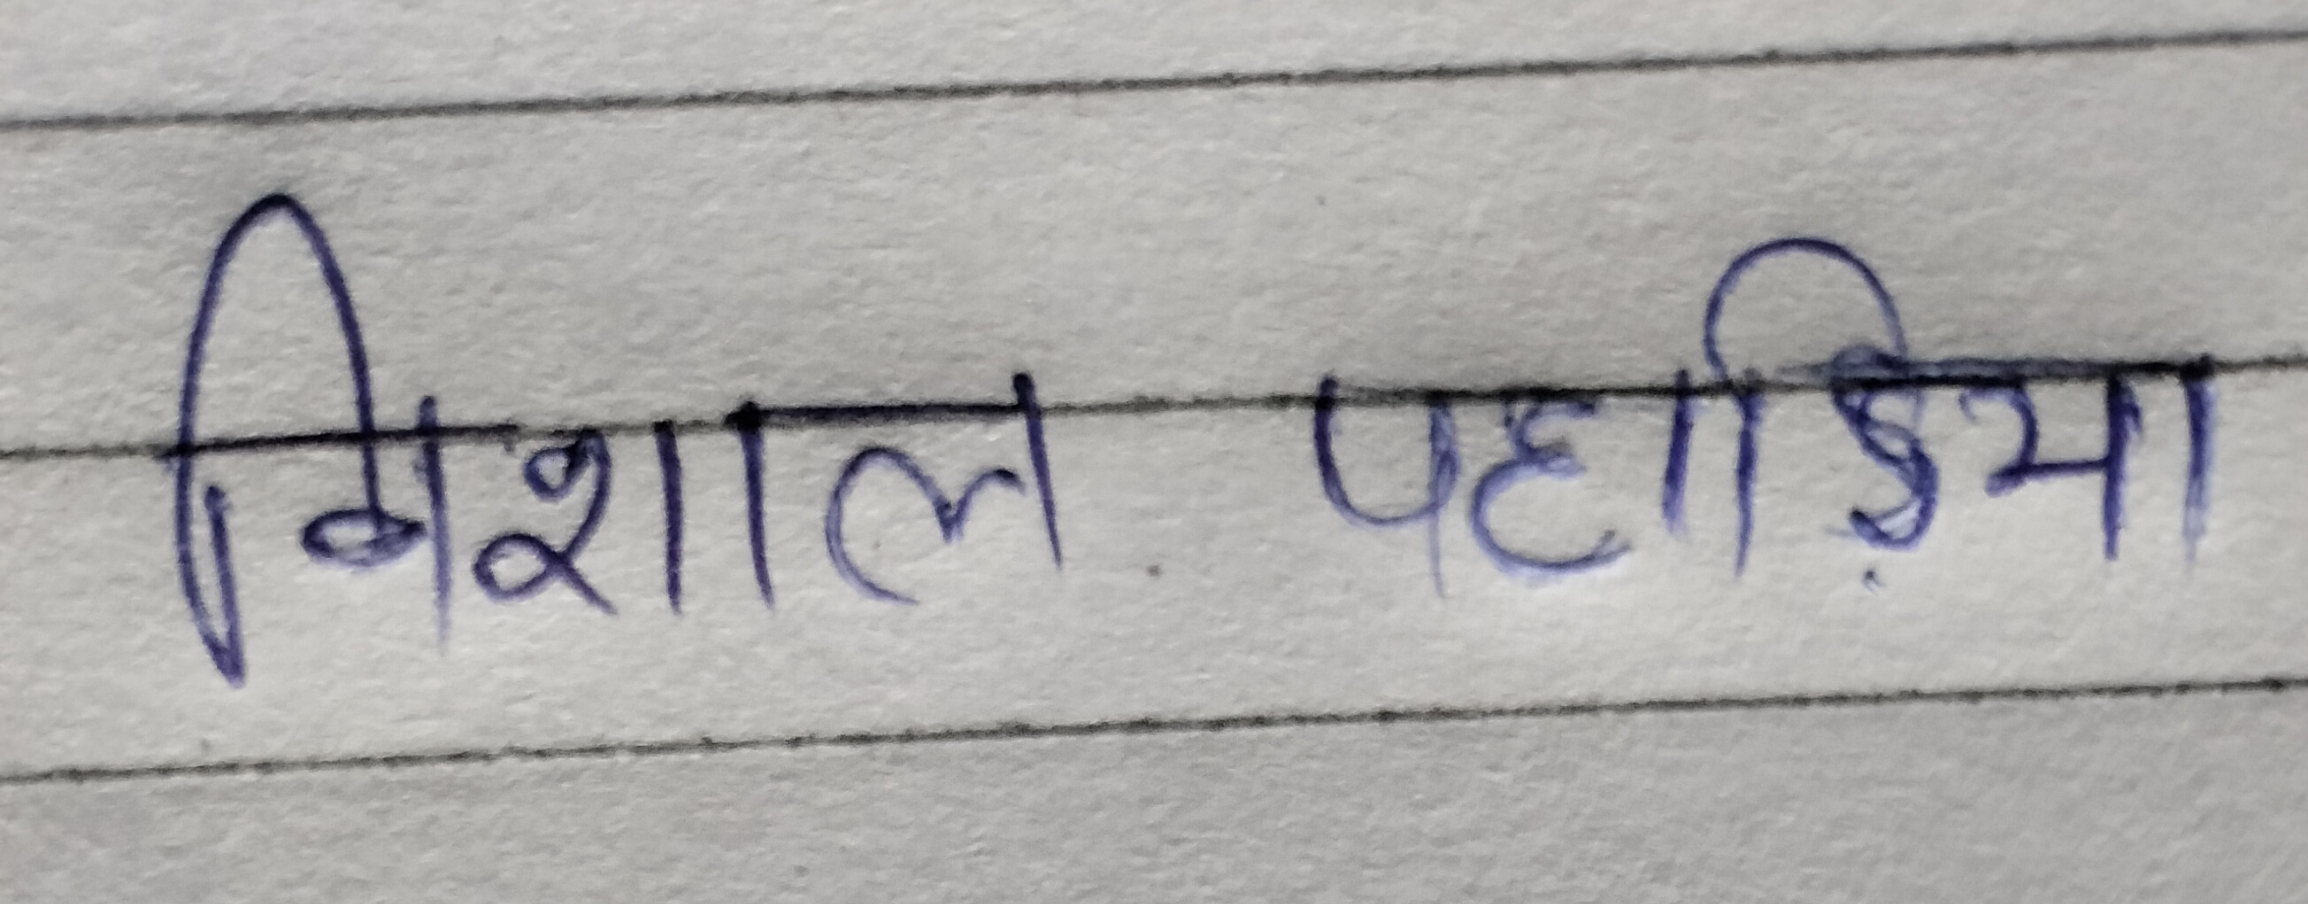 विशाल पहाड़िया